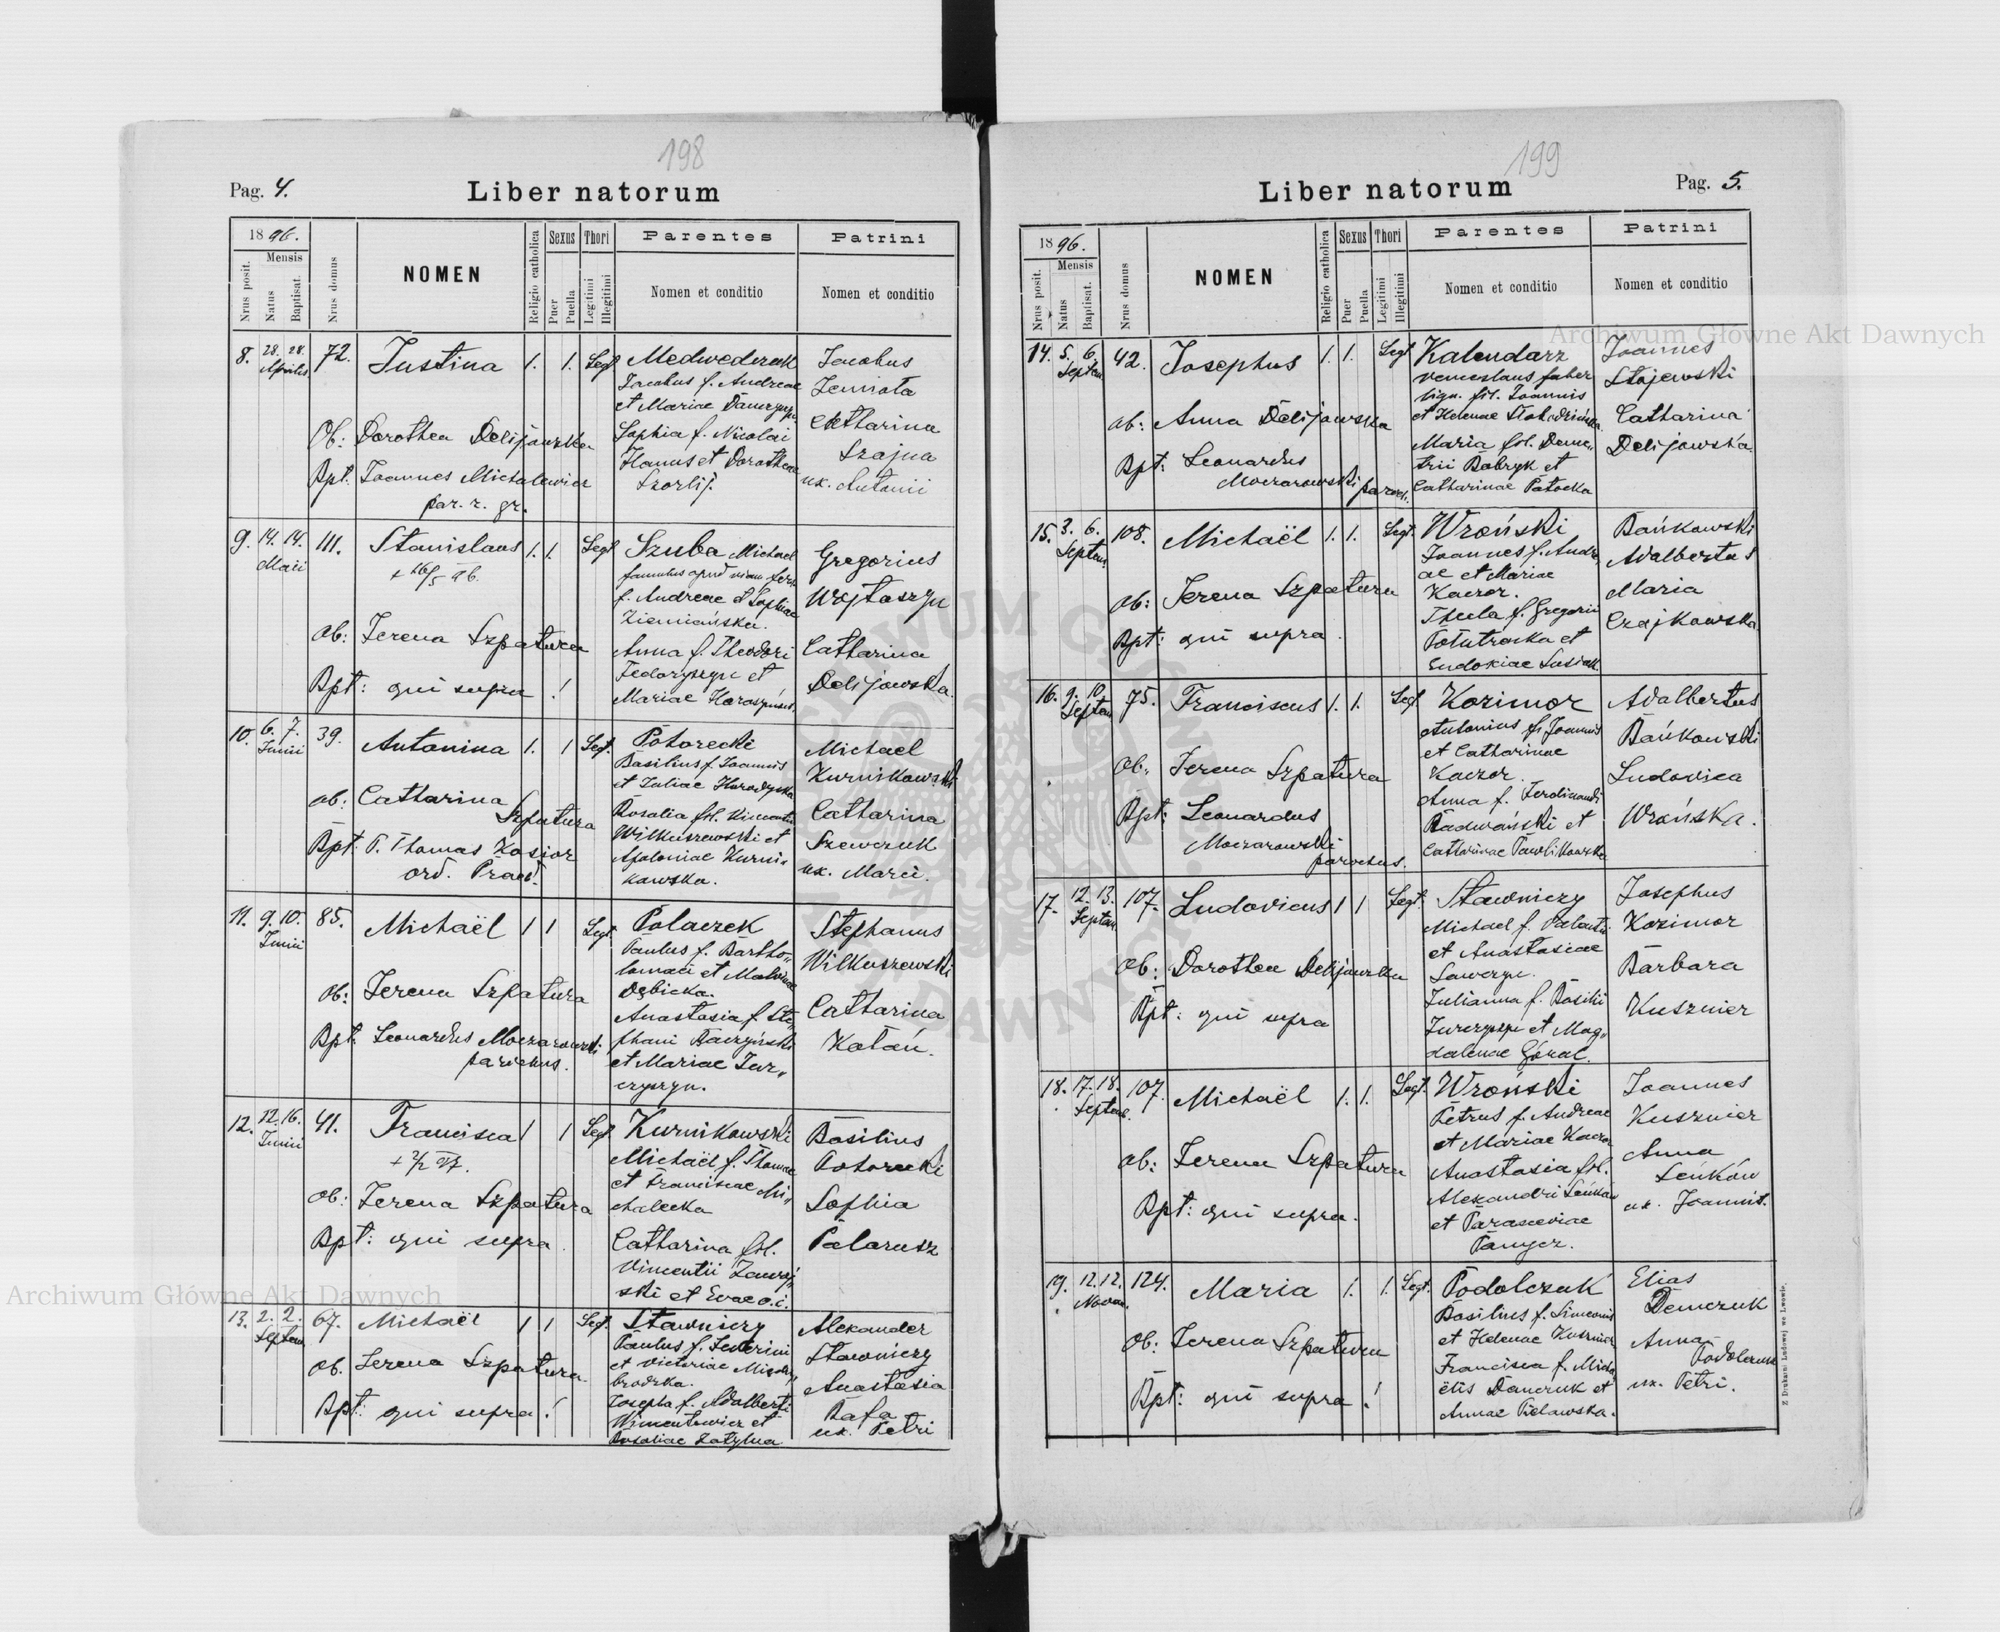 198
Pag. 4.
Liber natorum
1896.
Nrus posit.
Mensis
Natus
Baptisat.
Nrus domus
NOMEN
Religio catholica
Sexus
Puer
Puella
Thori
Legitimi
Illegitimi
Parentes
Nomen et conditio
Patrini
Nomen et conditio
8. 28. 28. Aprilis 72. Justina 1. 1. Legt.
Ob: Dorothea Delijowska
Bpt. Joannes Michalewicz
par. r. gr.
Medwedczuk
Jacobus f. Andreae
et Mariae
Sophia f. Nicolai
et Dorotheae
Jacobus
Catharina
Szajna
ux. Antonii
9. 14. 14. Maii 111. Stanislaus 1. 1. Legt.
ob: Terena Szpatura
Bpt: qui supra !
Szuba Michael
f. Andreae et Sophiae
Ziemiańska.
Anna f. Theodori
Fedoryszyn et
Mariae
Gregorius
Wojtaszyn
Catharina
Delijowska.
10. 6. 7. Junii 39. Antonina 1. 1 Legt.
ob: Catharina
Szpatura
Bpt. P. Thomas Kosior
ord. Praed.
Potorecki
Basilius f. Joannis
et Juliae Horodyska
Rosalia fil.
Wilkuszewski et
Apoloniae Kurni-
kowska.
Michael
Kurnikowski
Catharina
Szewczuk
ux. Marci.
11. 9. 10. Junii 85. Michaël 1 1 Legt.
ob: Terena Szpatura
Bpt. Leonardus Moczarowski
parochus.
Polaczek
Paulus f. Bartho-
lomaei et
Dębicka.
Anastasia f. Ste-
phani Raczyński
et Mariae Jur-
czyszyn.
Stephanus
Wilkuszewski
Catharina
Kotań.
12. 12. 16. Junii 41. Francisca 1 1 Legt.
ob: Terena Szpatura
Bpt: qui supra.
Kurnikowski
Michaël f. Thomae
et Franciscae Mi-
chalecka
Catharina fil.
Vincentii
ski et Evae
Basilius
Potorecki
Sophia
Palarusz
13. 2. 2. Septem. 67. Michaël 1 1 Legt.
ob. Terena Szpatura.
Bpt: qui supra!
Stawniczy
Paulus f. Severini
et Victoriae
brodzka.
Josepha f. Adalberti
Wincentowicz et
Rosaliae
Alexander
Stawniczy
Anastasia
Bafa
ux. Petri
199
Liber natorum
Pag. 5.
1896.
Nrus posit.
Mensis
Natus
Baptisat.
Nrus domus
NOMEN
Religio catholica
Sexus
Puer
Puella
Thori
Legitimi
Illegitimi
Parentes
Nomen et conditio
Patrini
Nomen et conditio
14. 5. 6. Septem 42. Josephus 1. 1. Legt
ob: Anna Delijowska
Bpt: Leonardus
Moczarowski paroch.
Kalendarz
Venceslaus faber
lign. fil. Joannis
et Helenae
Maria fil. Deme-
trii Babryk et
Catharinae Patocka
Joannes
Stojewski
Catharina
Delijowska.
15. 3. 6. Septem 108. Michaël 1. 1. Legt.
ob: Terena Szpatura
Bpt: qui supra.
Wroński
Joannes f. Andre
ae et Mariae
Kaczor.
Thecla f. Gregorii
et
Eudokiae
Bańkowski
Adalbertus
Maria
Czajkowska.
16. 9. 10. Septem 75. Franciscus 1. 1. Legt
ob. Terena Szpatura
Bpt: Leonardus
Moczarowski
parochus.
Kozimor
Antonius f. Joannis
et Catharinae
Kaczor.
Anna f. Ferdinandi
Radwański et
Catharinae Pawlikowska
Adalbertus
Bańkowski
Ludovica
Wrońska.
17. 12. 13. Septem. 107. Ludovicus 1 1 Legt.
ob: Dorothea Delijowska
Bpt: qui supra
Stawniczy
Michael f. Valentii
et Anastasiae
Julianna f. Basilii
Jurczyszyn et Mag-
dalenae Góral.
Josephus
Kozimor
Barbara
Kusznier
18. 17. 18. Septem. 107. Michaël 1. 1. Legt.
ob: Terena Szpatura
Bpt: qui supra.
Wroński
Petrus f. Andreae
et Mariae Kaczor
Anastasia fil.
Alexandri Seńków
et Parasceviae
Joannes
Kusznier
Anna
Seńków
ux. Joannis.
19. 12. 12. Novem. 124. Maria 1. 1. Legt.
ob: Terena Szpatura
Bpt: qui supra!
Podolczuk
Basilius f. Simeonis
et Helenae Kusznier
Francisca f. Micha
ëlis Danczuk et
Annae Pielawska.
Elias
Demczuk
Anna
Podolczuk
ux. Petri.
Z Drukarni Ludowej we Lwowie.
Archiwum Główne Akt Dawnych
Archiwum Główne Akt Dawnych